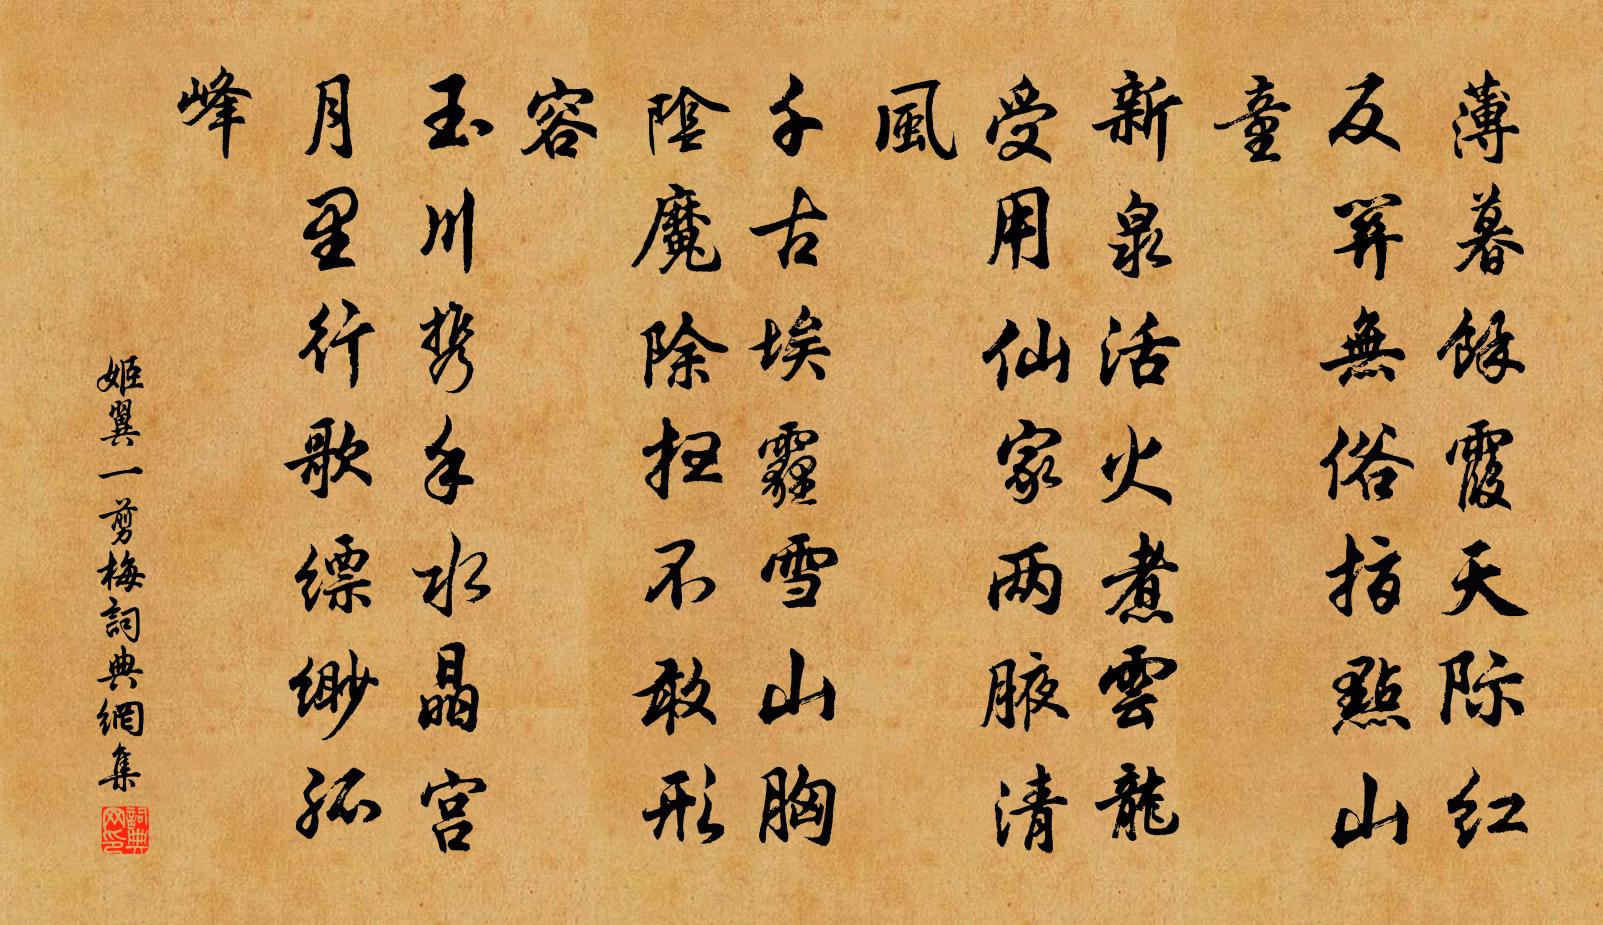 薄暮餘霞天际红
反筭無俗指點山
童
新泉活火煮雲龍
受用仙家两腋清
風
千古埃霾雪山胸
陰魔除扫不敢形
容
玉川携手水晶宫
月里行歌缥缈孤
峰
姬翼一剪梅詞典網集
詞典网印